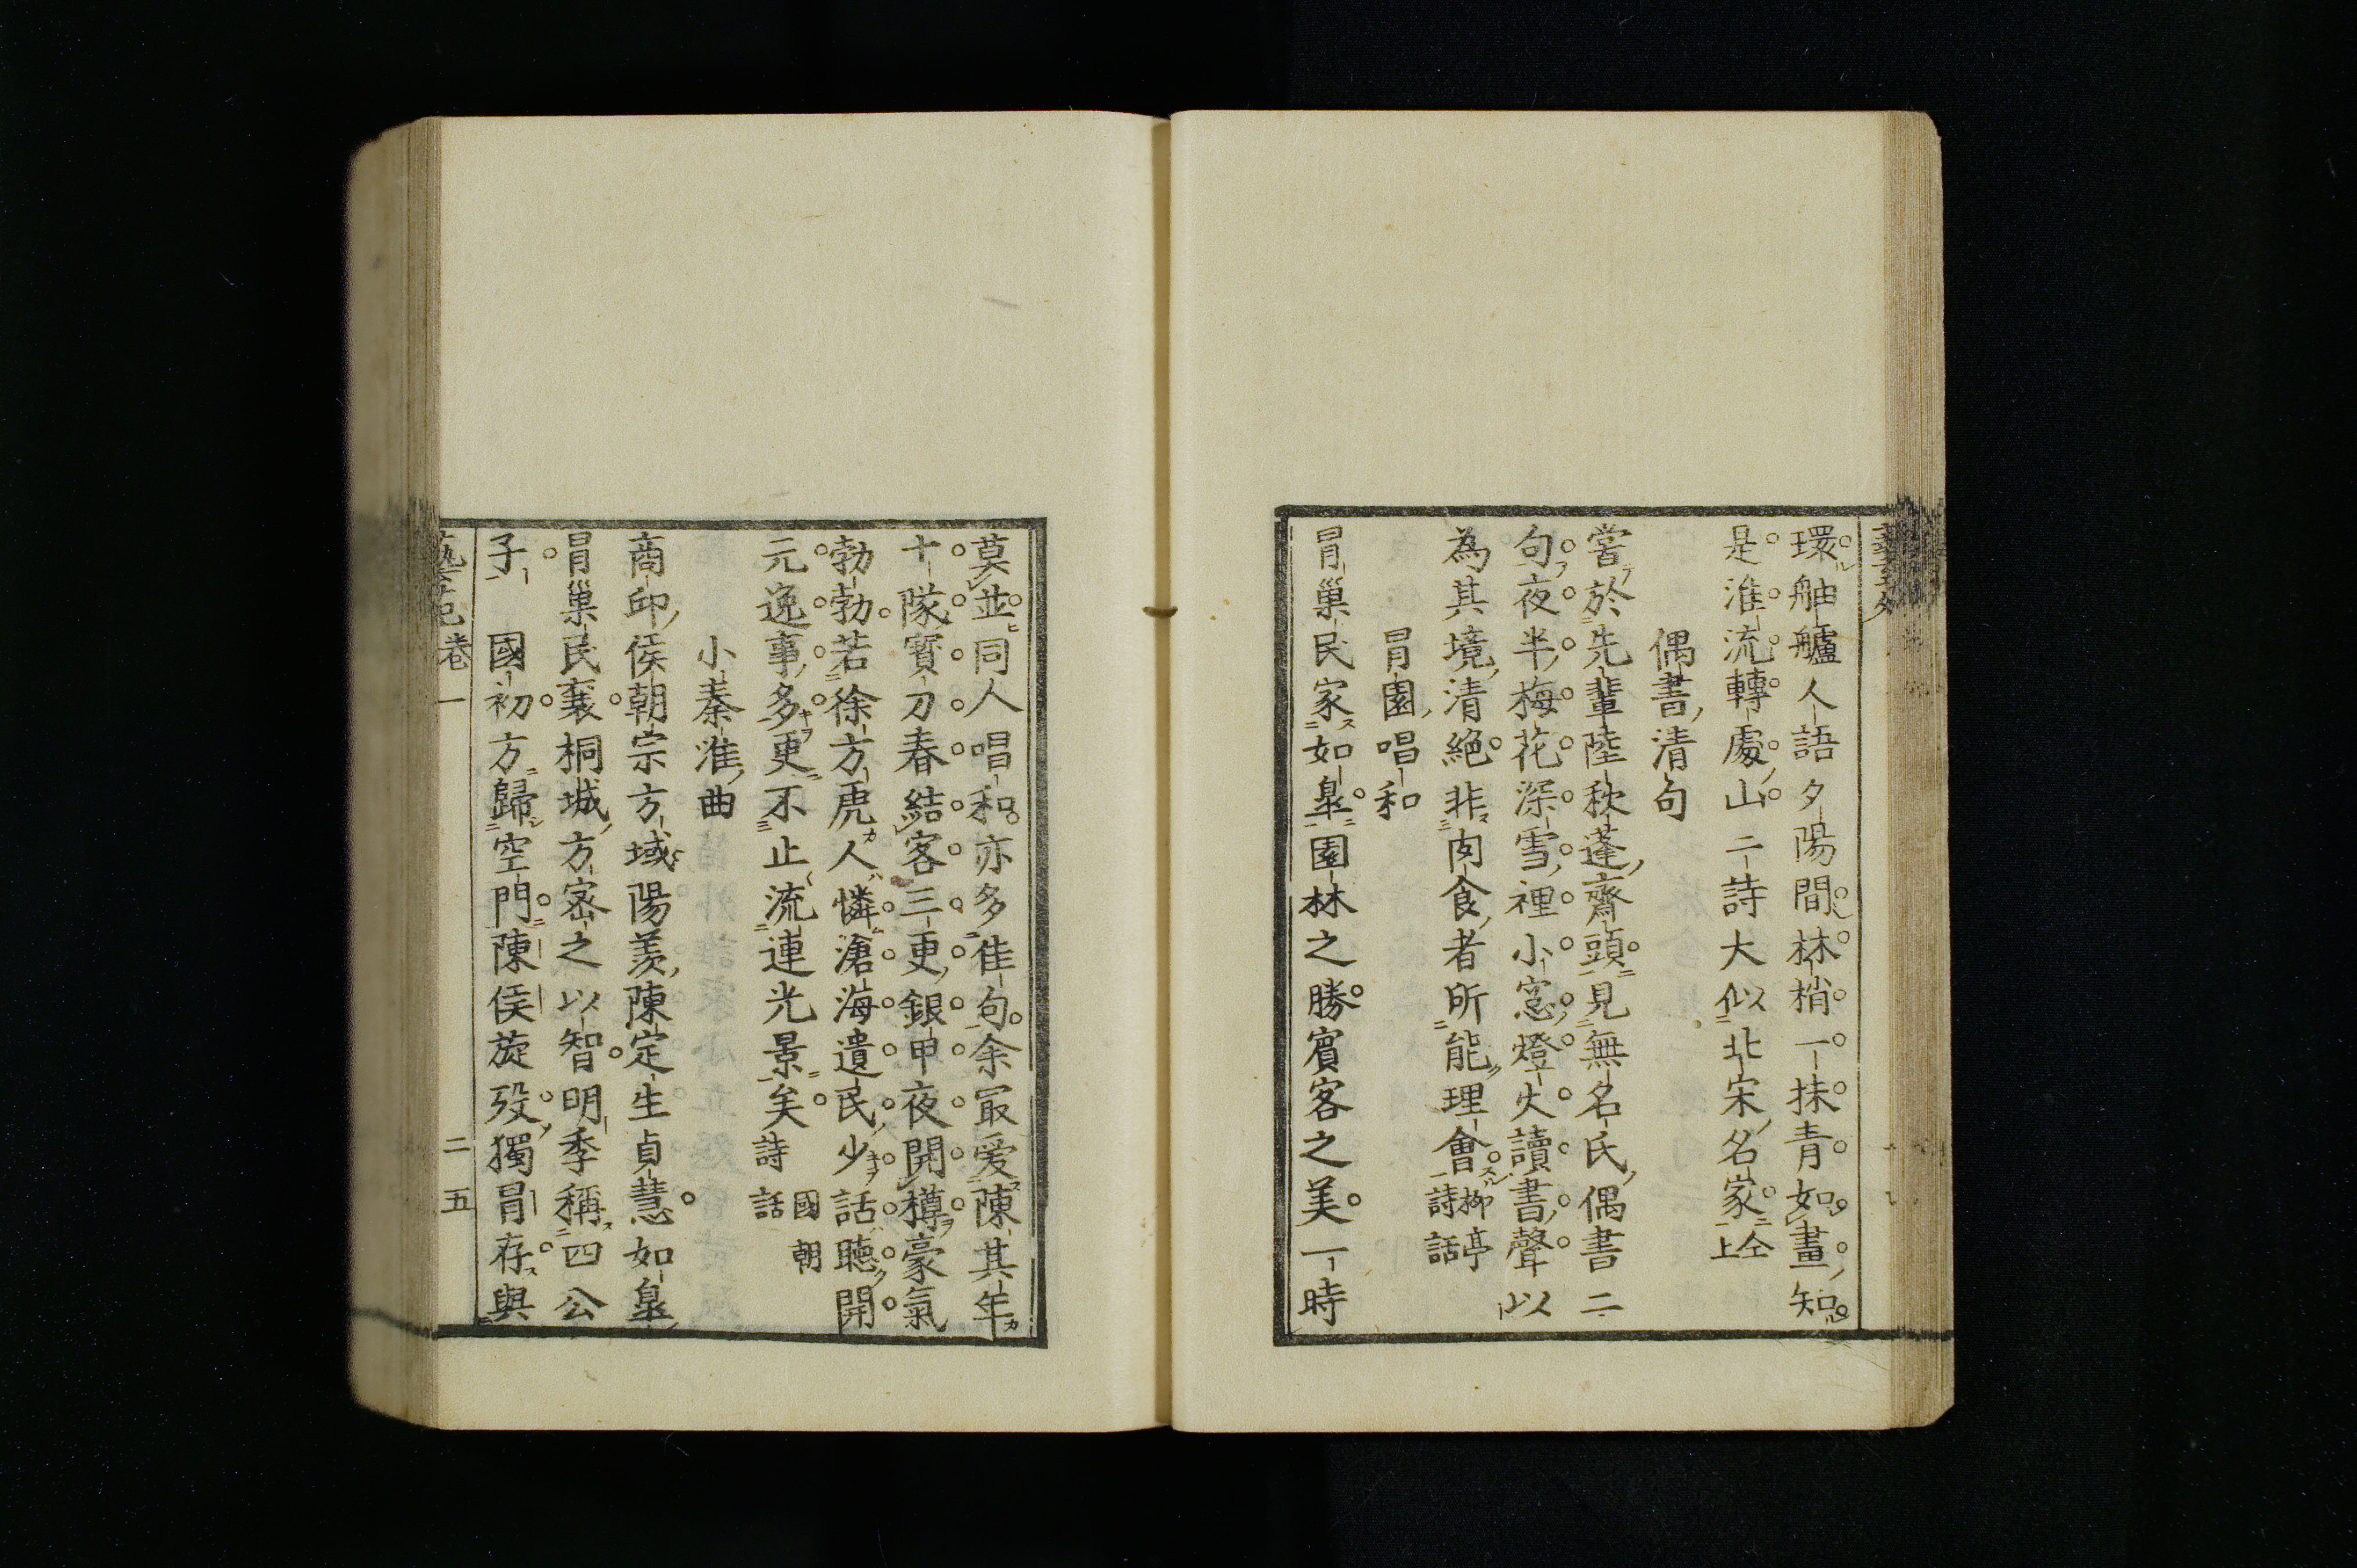 環舳艫人語夕陽間林梢一抹青如畫知
是淮流轉處山二詩大似北宋名家仝上
偶書清句
嘗於先輩陸秋蓬齋頭見無名氏偶書二
句夜半梅花深雪裡小窓燈火讀書聲以
為其境清絕非肉食者所能理會柳亭詩話
冐園唱和
冐巢民家如皐園林之勝賓客之美一時
莫並同人唱和亦多佳句余冣爱陳其年
十隊寳刀春結客三更銀甲夜開樽豪氣
勃勃若徐方虎人憐滄海遺民少話聽開
元逸事多更不止流連光景矣國朝詩話
小秦淮曲
商邱侯朝宗方域陽羨陳定生貞慧如皐
冐巢民襄桐城方宻之以智明季稱四公
子國初方歸空門陳侯旋歿獨冐存與
藝苑卷一 二五